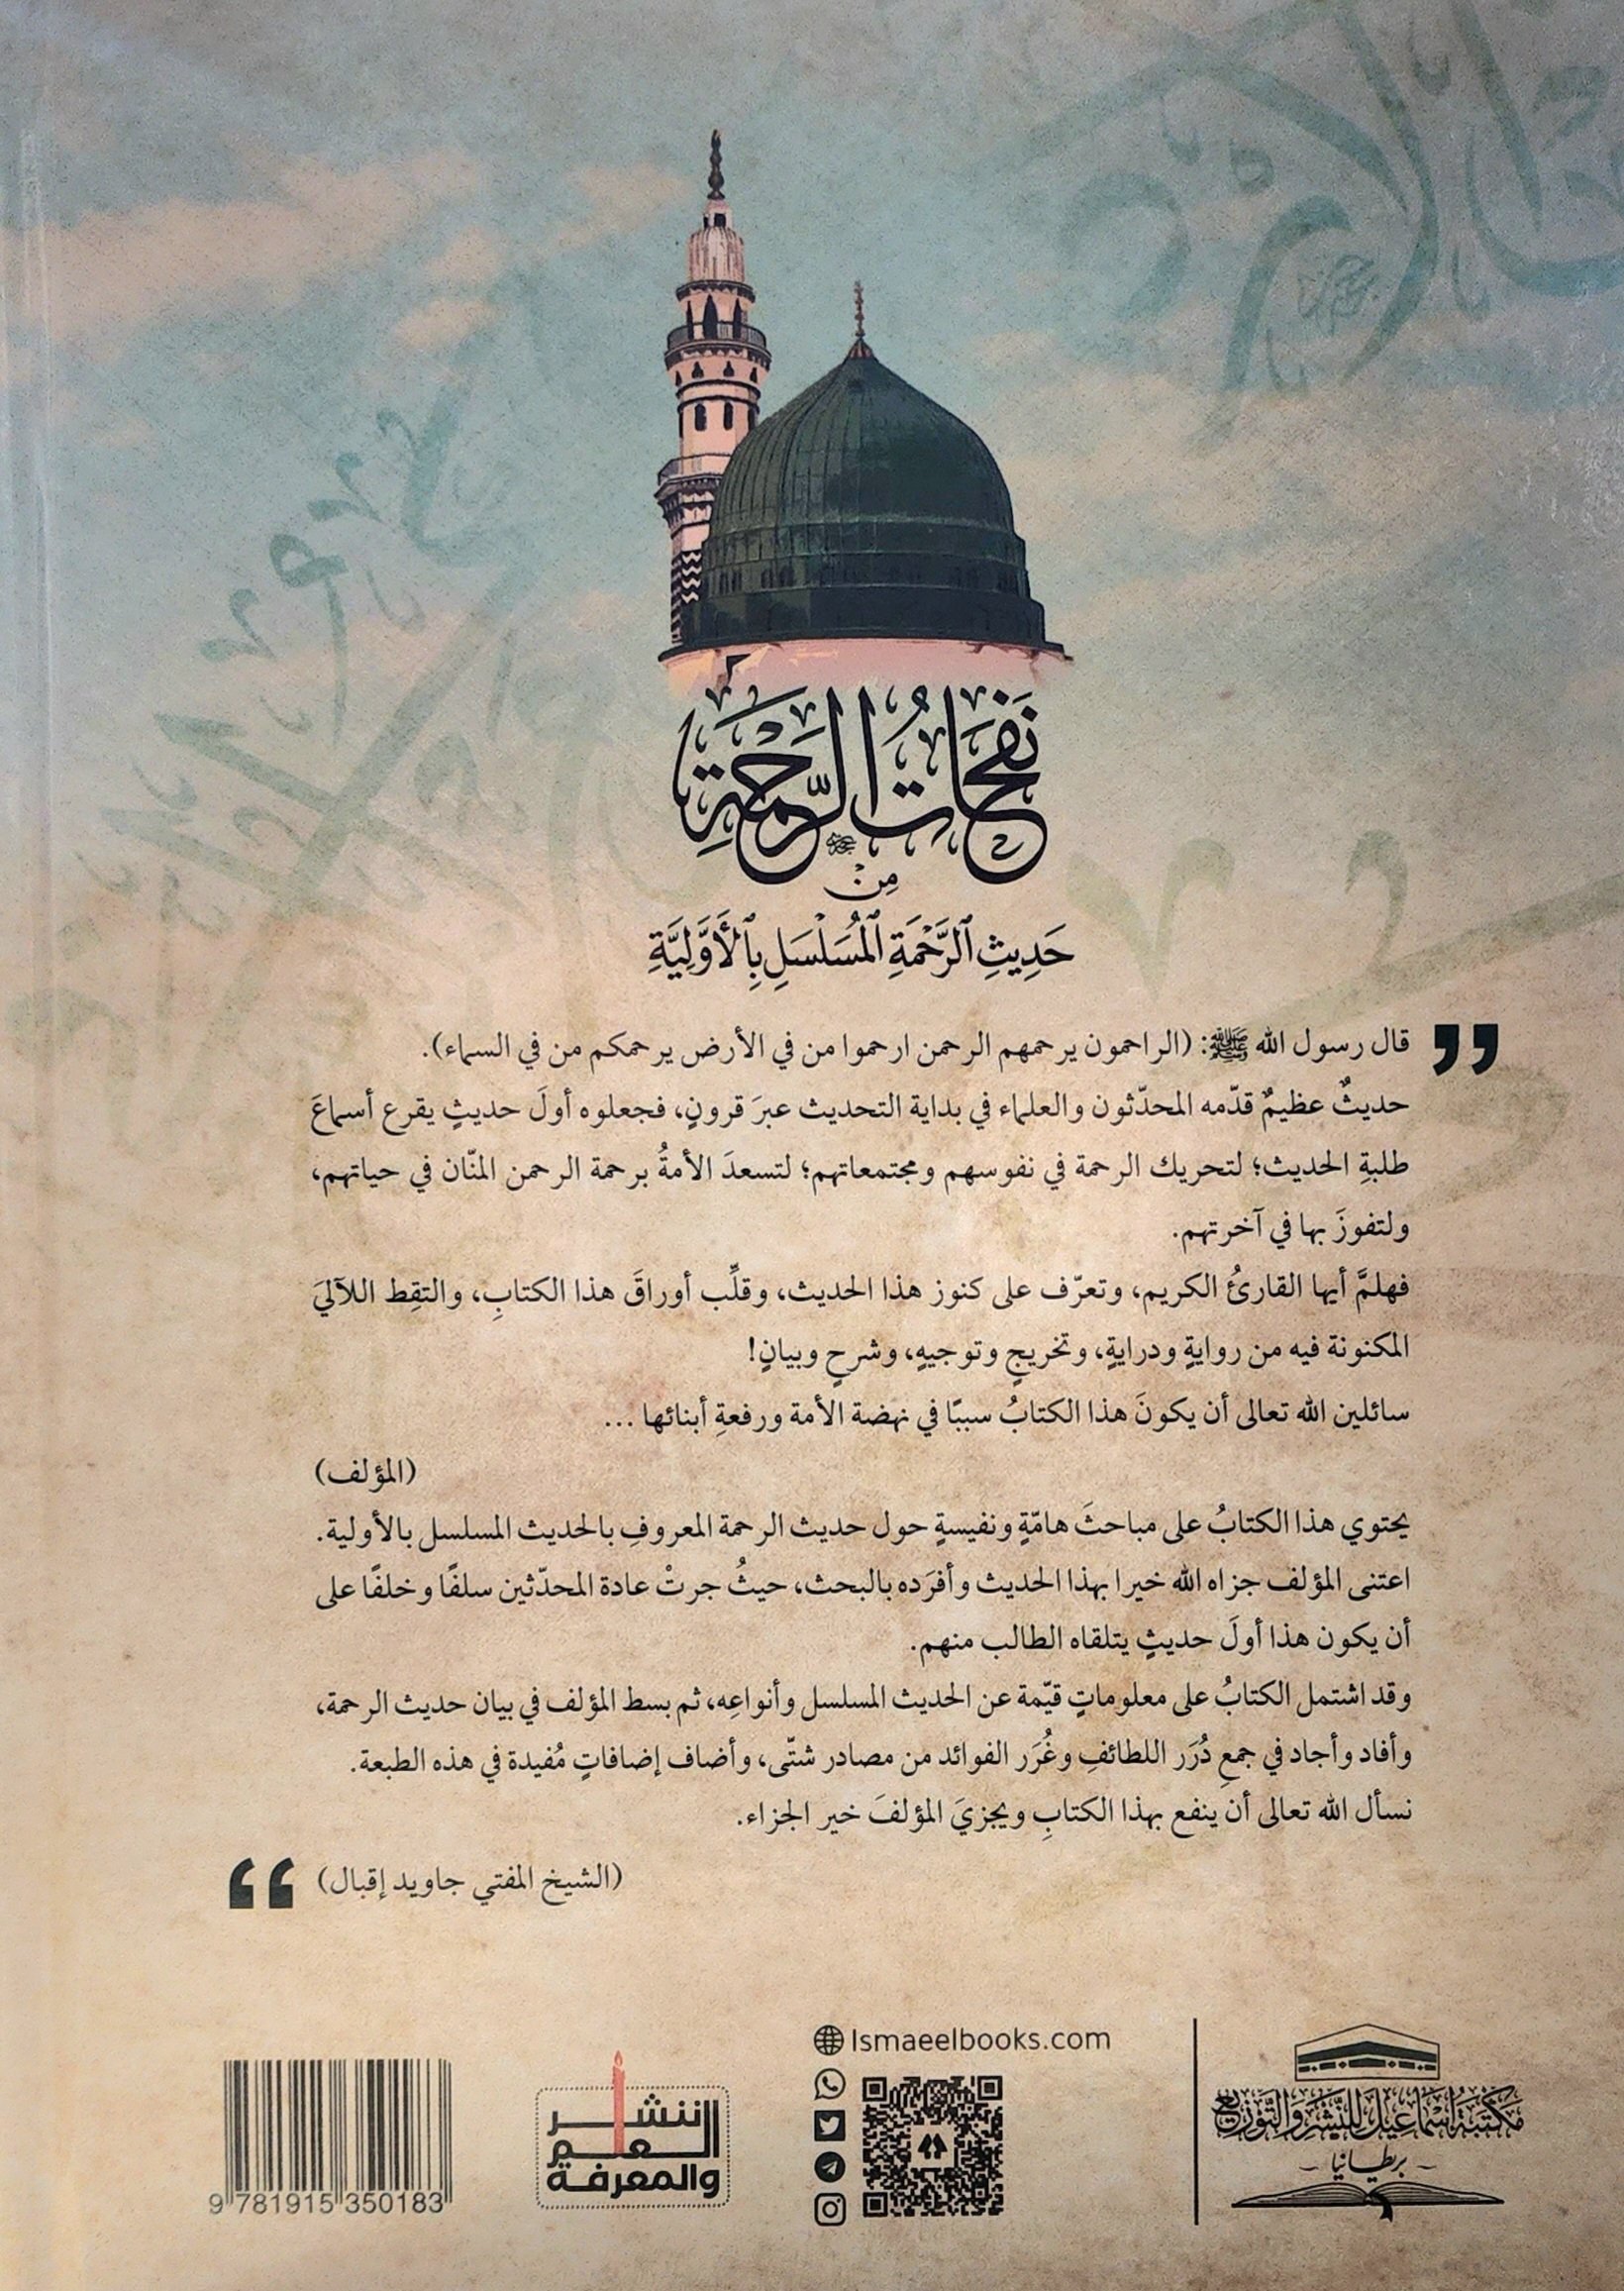 نَفَحَاتُ الرَّحْمَةِ
مِنْ
حَدِيثِ ٱلرَّحْمَةِ ٱلْمُسَلْسَلِ بِٱلْأَوَّلِيَّةِ
قال رسول الله ﷺ: (الراحمون يرحمهم الرحمن ارحموا من في الأرض يرحمكم من في السماء).
حديثٌ عظيمٌ قدّمه المحدّثون والعلماء في بداية التحديث عبرَ قرونٍ، فجعلوه أولَ حديثٍ يقرع أسماعَ
طلبةِ الحديث؛ لتحريك الرحمة في نفوسهم ومجتمعاتهم؛ لتسعدَ الأمةُ برحمة الرحمن المنّان في حياتهم،
ولتفوزَ بها في آخرتهم.
فهلمَّ أيها القارئُ الكريم، وتعرّف على كنوز هذا الحديث، وقلِّب أوراقَ هذا الكتابِ، والتقِط اللآليَ
المكنونة فيه من روايةٍ ودرايةٍ، وتخريجٍ وتوجيهٍ، وشرحٍ وبيانٍ!
سائلين الله تعالى أن يكونَ هذا الكتابُ سببًا في نهضة الأمة ورفعةِ أبنائها ...
(المؤلف)
يحتوي هذا الكتابُ على مباحثَ هامّةٍ ونفيسةٍ حول حديث الرحمة المعروفِ بالحديث المسلسل بالأولية.
اعتنى المؤلف جزاه الله خيرا بهذا الحديث وأفرَده بالبحث، حيثُ جرتْ عادة المحدّثين سلفًا وخلفًا على
أن يكون هذا أولَ حديثٍ يتلقاه الطالب منهم.
وقد اشتمل الكتابُ على معلوماتٍ قيّمة عن الحديث المسلسل وأنواعِه، ثم بسط المؤلف في بيان حديث الرحمة،
وأفاد وأجاد في جمعِ دُرَر اللطائفِ وغُرَر الفوائد من مصادر شتّى، وأضاف إضافاتٍ مُفيدة في هذه الطبعة.
نسأل الله تعالى أن ينفع بهذا الكتابِ ويجزيَ المؤلفَ خير الجزاء.
(الشيخ المفتي جاويد إقبال)
مَكتَبَةُ إسْمَاعِيلَ لِلنَّشْرِ وَالتَّوْزِيعِ
~ بريطانيا ~
Ismaeelbooks.com
لننشر
العلم
والمعرفة
9 781915 350183